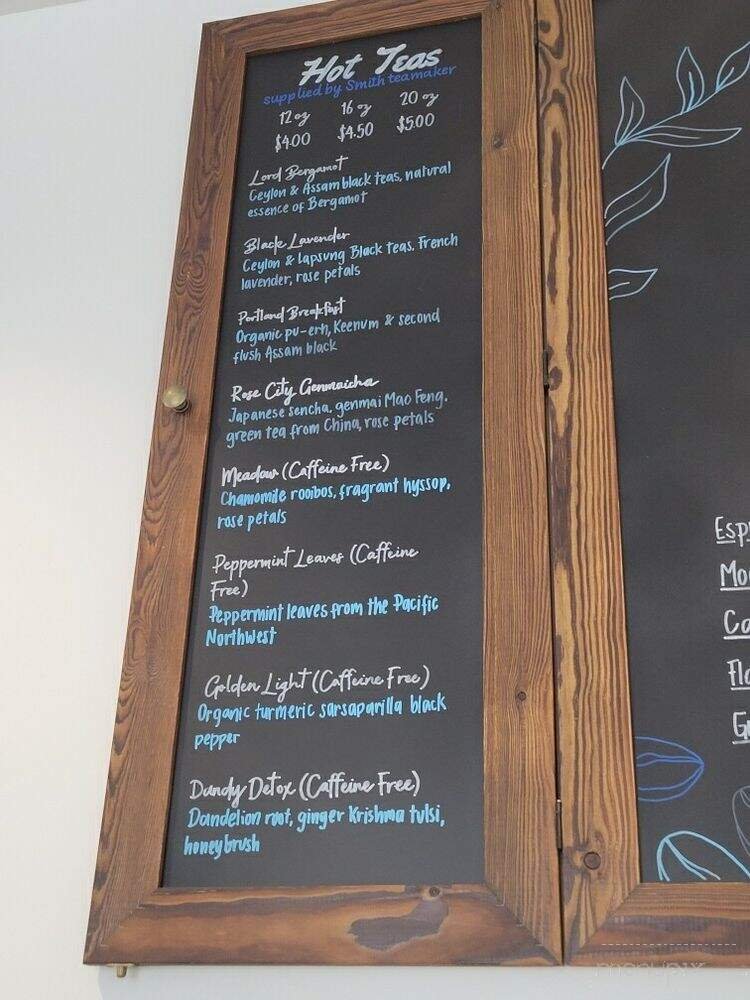 Hot Teas
supplied by Smith teamaker
12 oz 16 oz 20 oz
$4.00 $4.50 $5.00
Lord Bergamot
Ceylon & Assam black teas, natural
essence of Bergamot
Black Lavender
Ceylon & Lapsung Black teas. French
lavender, rose petals
Portland Breakfast
Organic pu-erh, Keenum & second
flush Assam black
Rose City Genmaicha
Japanese sencha, genmai Mao Feng.
green tea from China, rose petals
Meadow (Caffeine Free)
Chamomile rooibos, fragrant hyssop,
rose petals
Peppermint Leaves (Caffeine
Free)
Peppermint leaves from the Pacific
Northwest
Golden Light (Caffeine Free)
Organic turmeric sarsaparilla black
pepper
Dandy Detox (Caffeine Free)
Dandelion root, ginger Krishna tulsi,
honeybrush
Esp
Mo
Ca
Fl
G
menupix